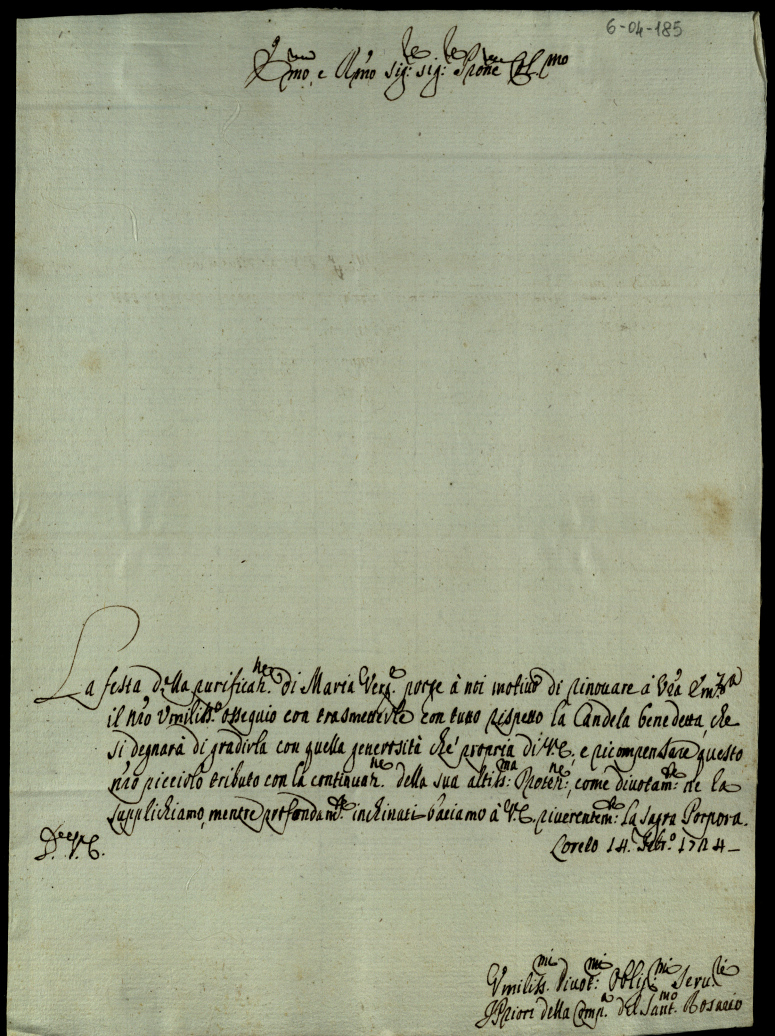 6-04-185
E.mo, e R.mo Sig.re Sig.re P.rone Col.mo
La festa della purificaz.ne di Maria Verg.e porge à noi motivo di rinovare à V.ra Em.za
il n.ro Umiliss.o ossequio con trasmetterle con tutto rispetto la Candela benedetta, che
si degnarà di gradirla con quella generosità ch'è propria di V.E., e ricompensare questo
n.ro picciolo tributo con la continuaz.ne della sua altiss.ma Protez.ne, come divotam.te ne la
supplichiamo, mentre profondam.te inchinati baciamo à V.E. riverentem.te la sagra Porpora.
D. V. E. Loreto 14. Febr.o 1724
Umiliss.mi Divot.mi Oblig.mi Serv.ri
I Priori della Comp.a del Sant.mo Rosario